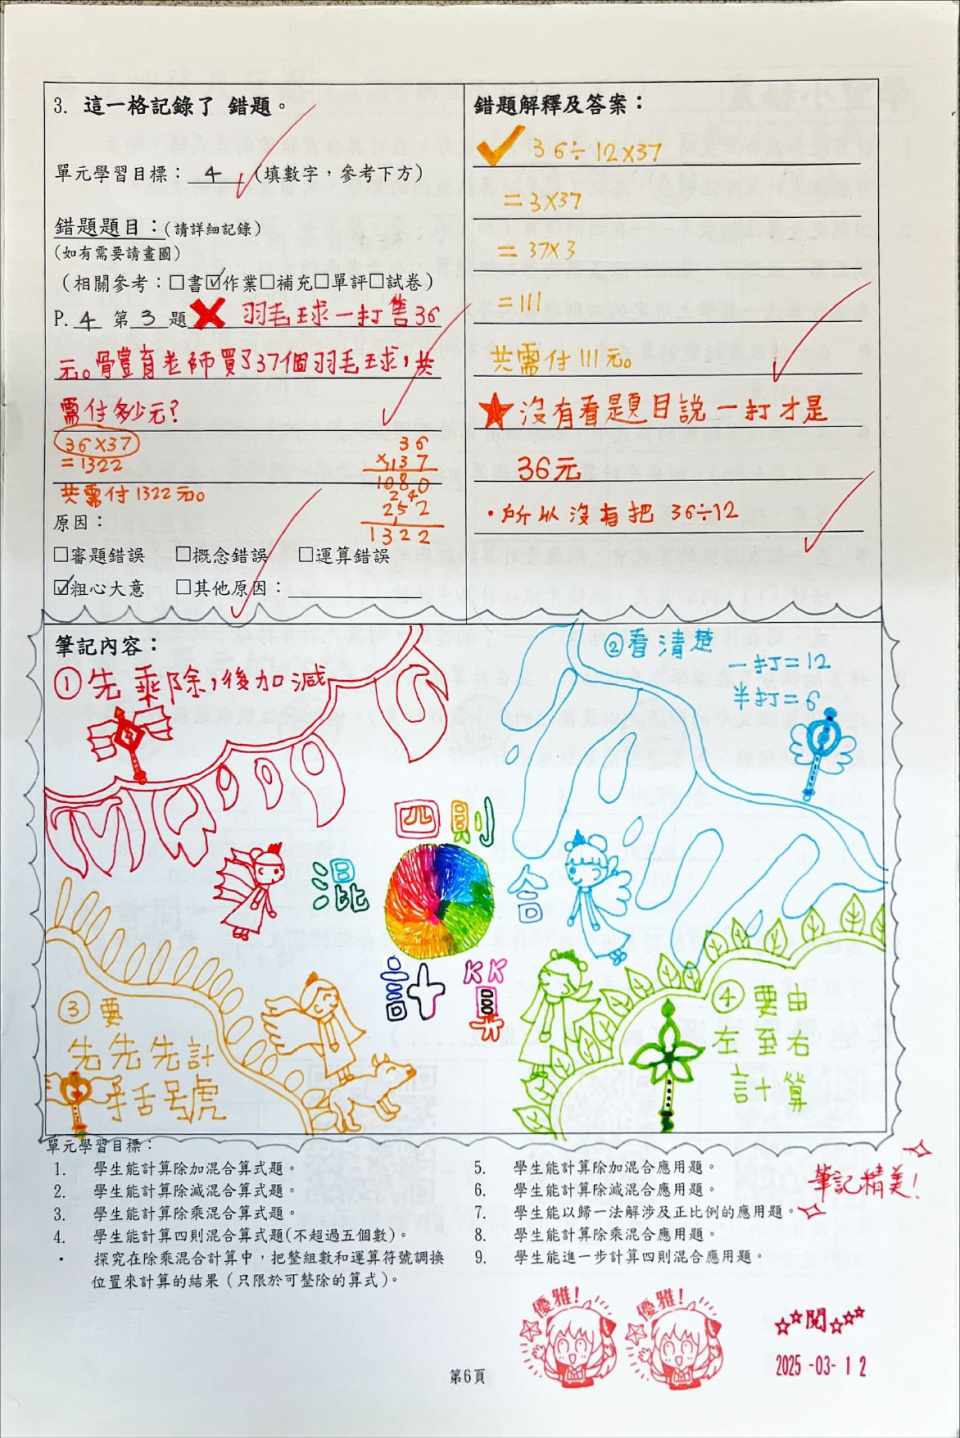 3. 這一格記錄了 錯題。
單元學習目標：4（填數字，參考下方）
錯題題目：(請詳細記錄)
(如有需要請畫圖)
（相關參考：□書☑作業□補充□單評□試卷）
P. 4 第 3 題 ✗ 羽毛球一打售36
元。骨豊育老師買了37個羽毛球，共
需付多少元？
36×37
=1322
共需付1322元。
36
×37
1080
252
1322
原因：
□審題錯誤 □概念錯誤 □運算錯誤
☑粗心大意 □其他原因：
錯題解釋及答案：
✓ 36÷12×37
=3×37
=37×3
=111
共需付111元。
★沒有看題目說一打才是
36元
·所以沒有把 36÷12
筆記內容：
①先乘除，後加減
②看清楚
一打=12
半打=6
四則
混合
計算
③要
先先先計
括號
④要由
左至右
計算
單元學習目標：
1. 學生能計算除加混合算式題。
2. 學生能計算除減混合算式題。
3. 學生能計算除乘混合算式題。
4. 學生能計算四則混合算式題(不超過五個數)。
· 探究在除乘混合計算中，把整組數和運算符號調換
位置來計算的結果（只限於可整除的算式）。
5. 學生能計算除加混合應用題。
6. 學生能計算除減混合應用題。
7. 學生能以歸一法解涉及正比例的應用題。
8. 學生能計算除乘混合應用題。
9. 學生能進一步計算四則混合應用題。
筆記精美！
優雅！
優雅！
☆☆閱☆☆☆
2025-03-12
第6頁